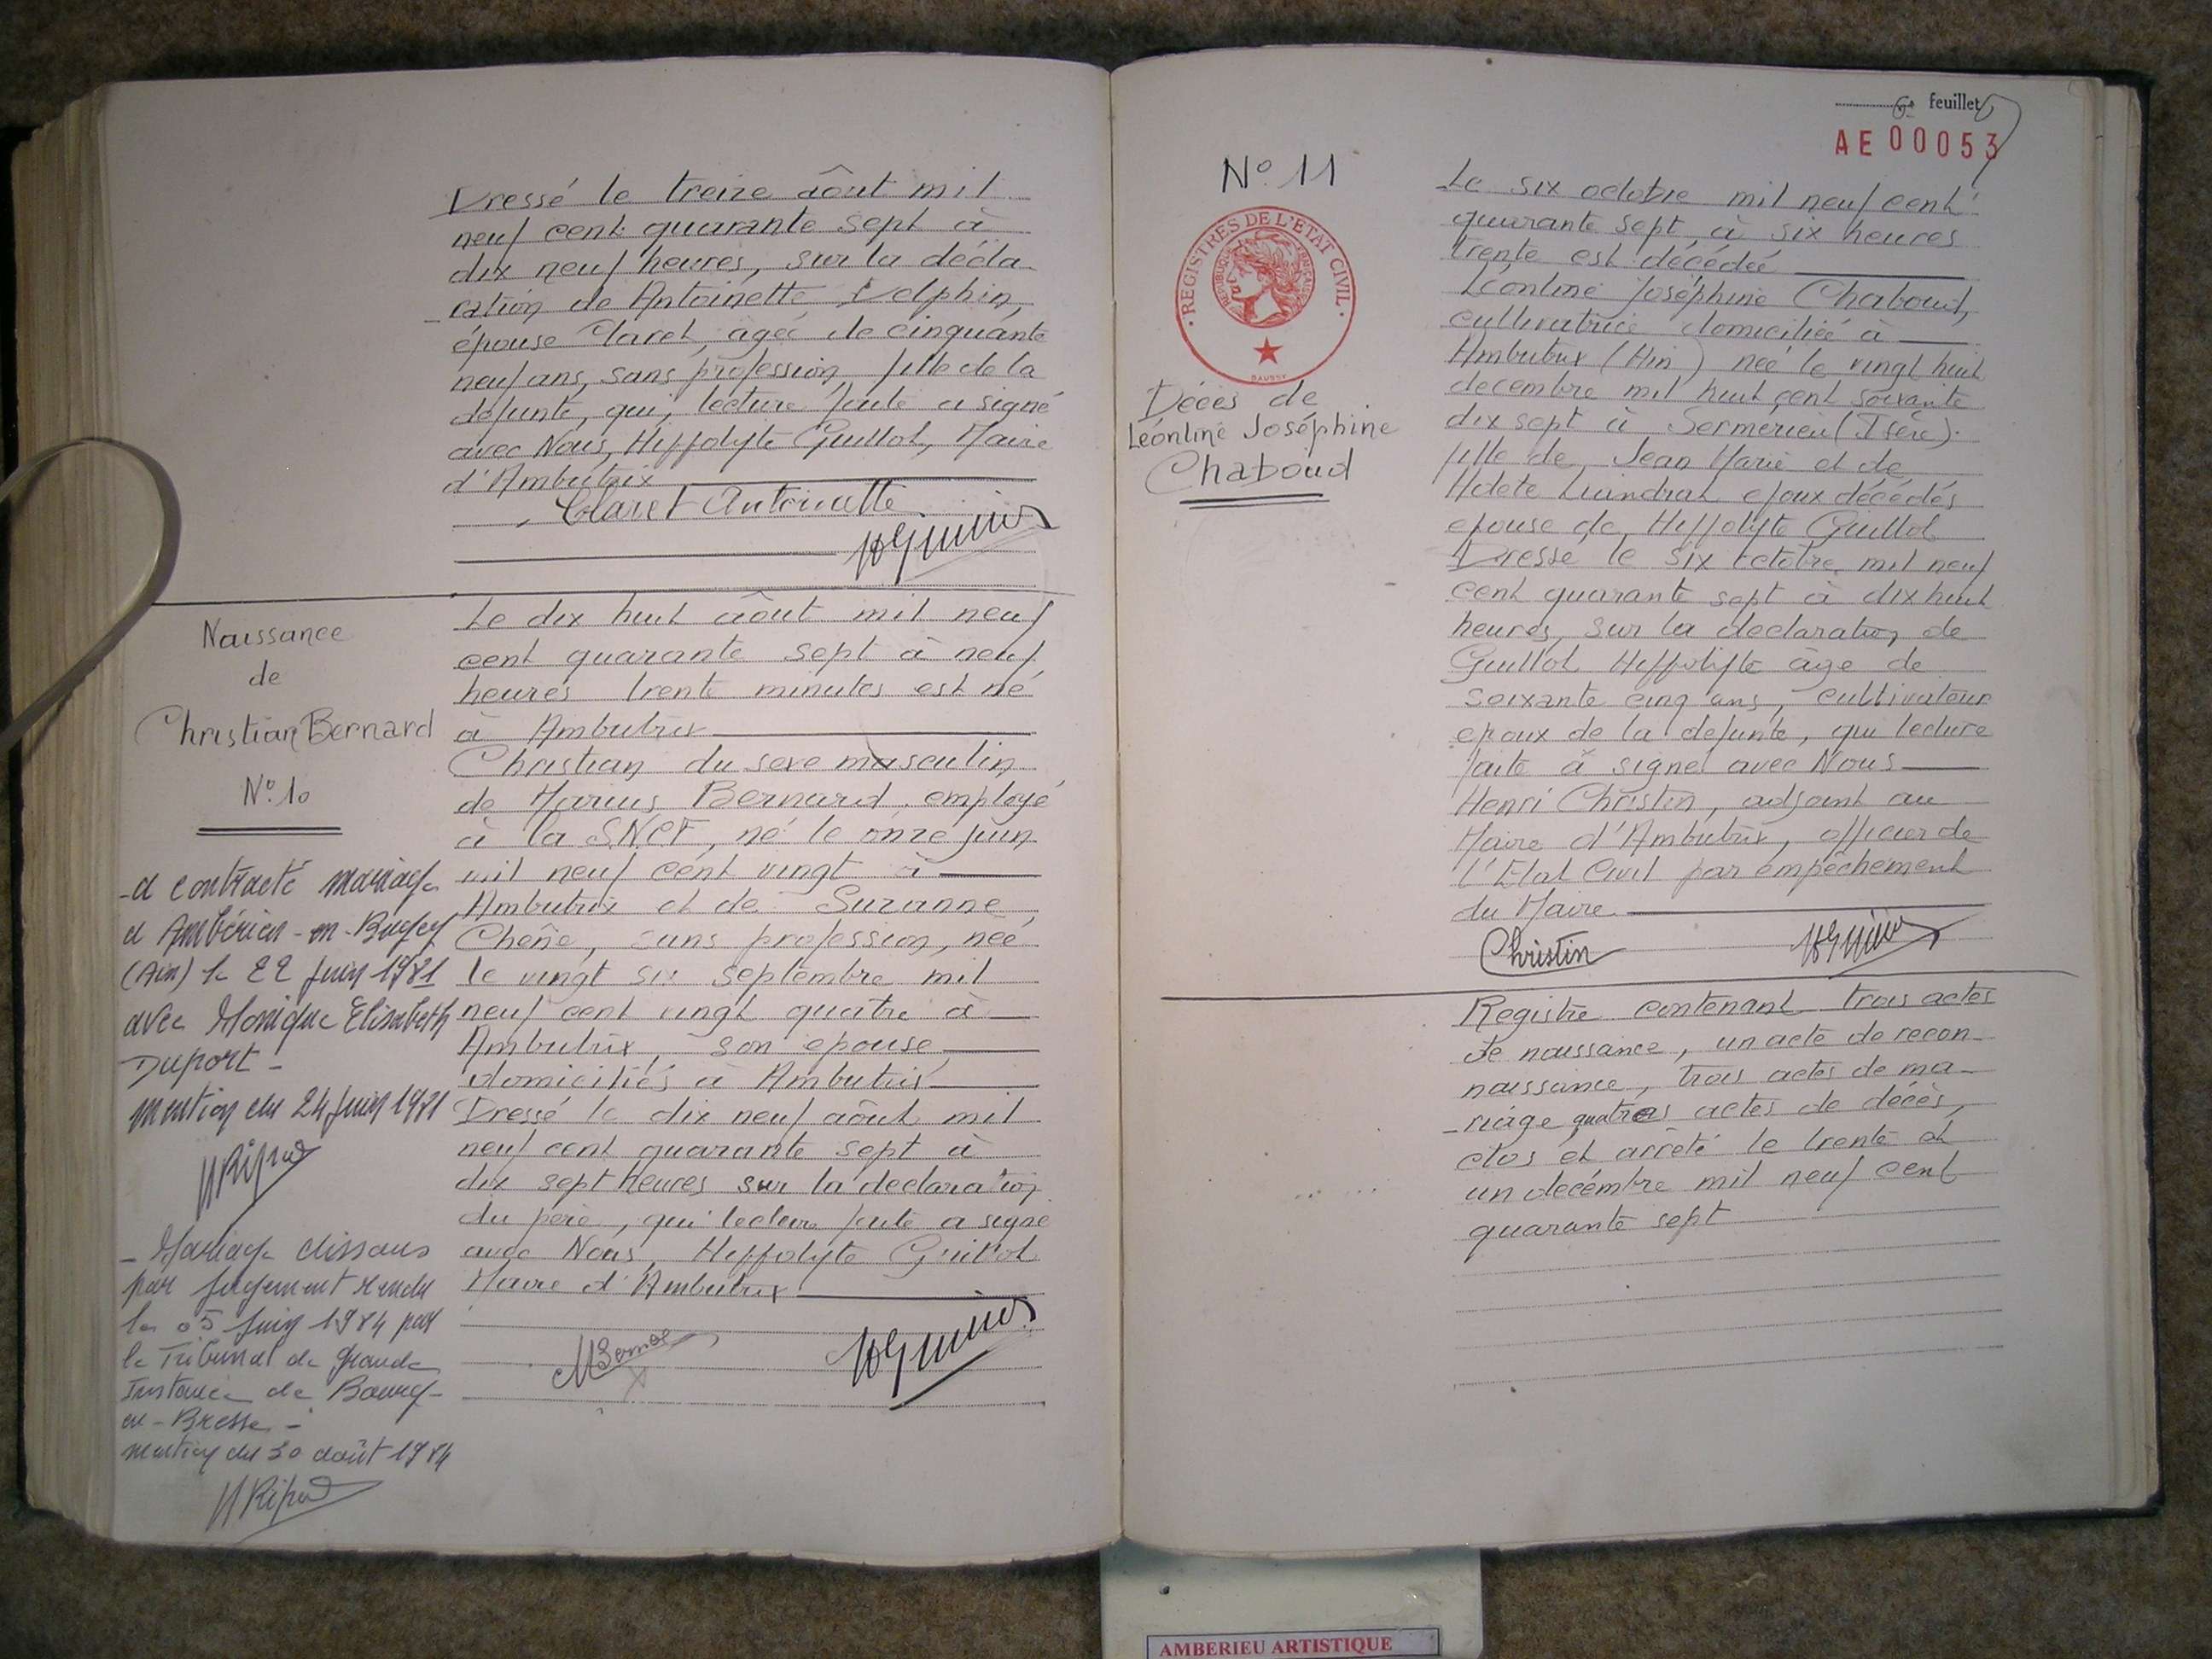 Dressé le treize âout mil
neuf cent quarante sept à
dix neuf heures, sur la décla
ration de Antoinette Delphin,
épouse Claret, agée de cinquante
neuf ans, sans profession, fille de la
défunte, qui, lecture faite a signé
avec Nous, Hippolyte Guillot, Maire
d'Ambutrix
Claret Antoinette
Naissance
de
Christian Bernard
N° 10
Le dix huit âout mil neuf
cent quarante sept à neuf
heures trente minutes est né
à Ambutrix
Christian du sexe masculin
de Marius Bernard, employé
à la S.N.C.F, né le onze juin
mil neuf cent vingt à
Ambutrix et de Suzanne
Chêne, sans profession, née
le vingt six septembre mil
neuf cent vingt quatre à
Ambutrix, son epouse
domiciliés à Ambutrix
Dressé le dix neuf août mil
neuf cent quarante sept à
dix sept heures sur la declaration
du père, qui lecture faite a signé
avec Nous, Hippolyte Guillot
Maire d'Ambutrix
- a contracté mariage
à Ambérieu-en-Bugey
(Ain) le 22 Juin 1981
avec Monique Elisabeth
Duport -
mention du 24 Juin 1981
- Mariage dissous
par jugement rendu
le 05 Juin 1984 par
le Tribunal de Grande
Instance de Bourg-
en-Bresse -
mention du 30 août 1984
feuillet
AE 00053
N° 11
REGISTRES DE L'ÉTAT CIVIL
RÉPUBLIQUE FRANÇAISE
Décès de
Léontine Joséphine
Chaboud
Le six octobre mil neuf cent
quarante sept, à six heures
trente est décédée
Léontine Joséphine Chaboud,
cultivatrice domiciliée à
Ambutrix (Ain) née le vingt huit
decembre mil huit cent soixante
dix sept à Sermérieu (Isère).
fille de Jean Marie et de
epoux décédés
epouse de Hippolyte Guillot
Dressé le six octobre mil neuf
cent quarante sept à dix huit
heures, sur la declaration de
Guillot Hippolyte âge de
soixante cinq ans, cultivateur
epoux de la defunte, qui lecture
faite à signé avec Nous
Henri Christin, adjoint au
Maire d'Ambutrix, officier de
l'Etat Civil par empêchement
du Maire
Christin
Registre contenant trois actes
de naissance, un acte de recon-
naissance, trois actes de ma-
riage quatre actes de décès,
clos et arrêté le trente et
un decémbre mil neuf cent
quarante sept
AMBERIEU ARTISTIQUE